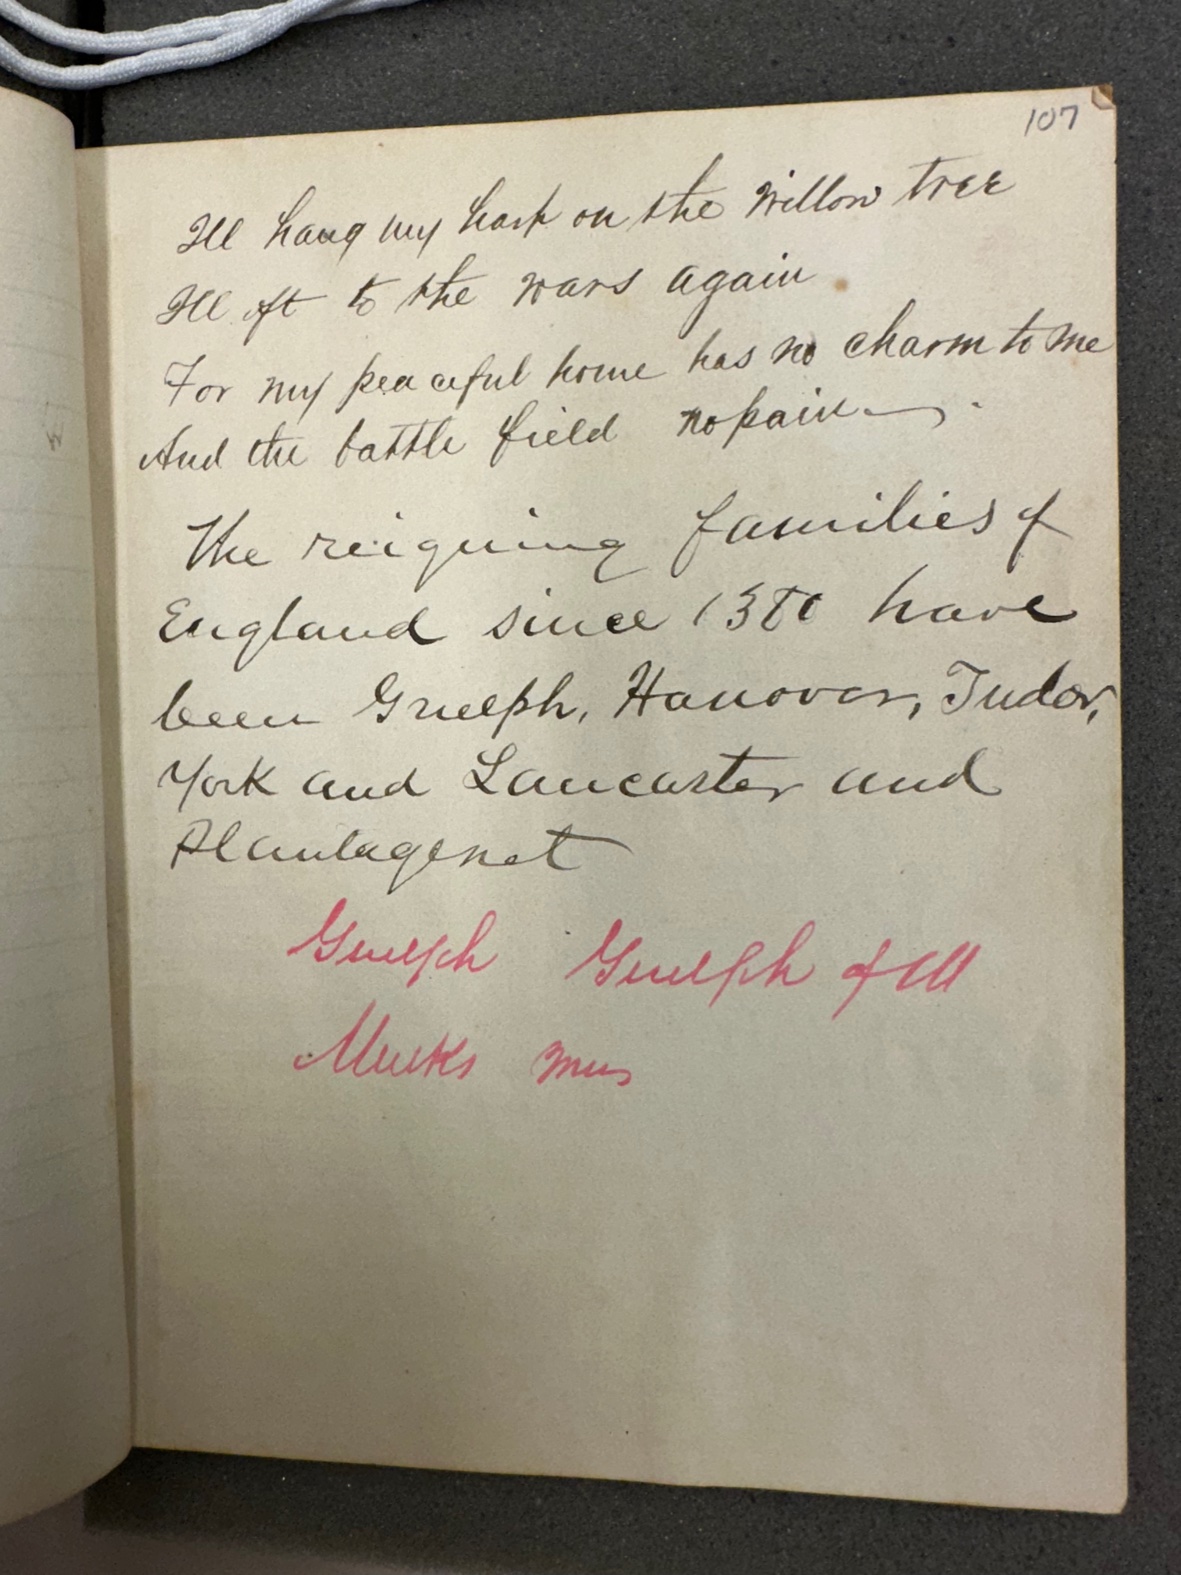 107
Ill hang my harp on the willow tree
Ill off to the wars again
For my peaceful home has no charm to me
And the battle field no pain
The reigning families of
England since 1380 have
been Guelph, Hanover, Tudor,
York and Lancaster and
Plantagenet
Guelph Guelph of
Mucks mus